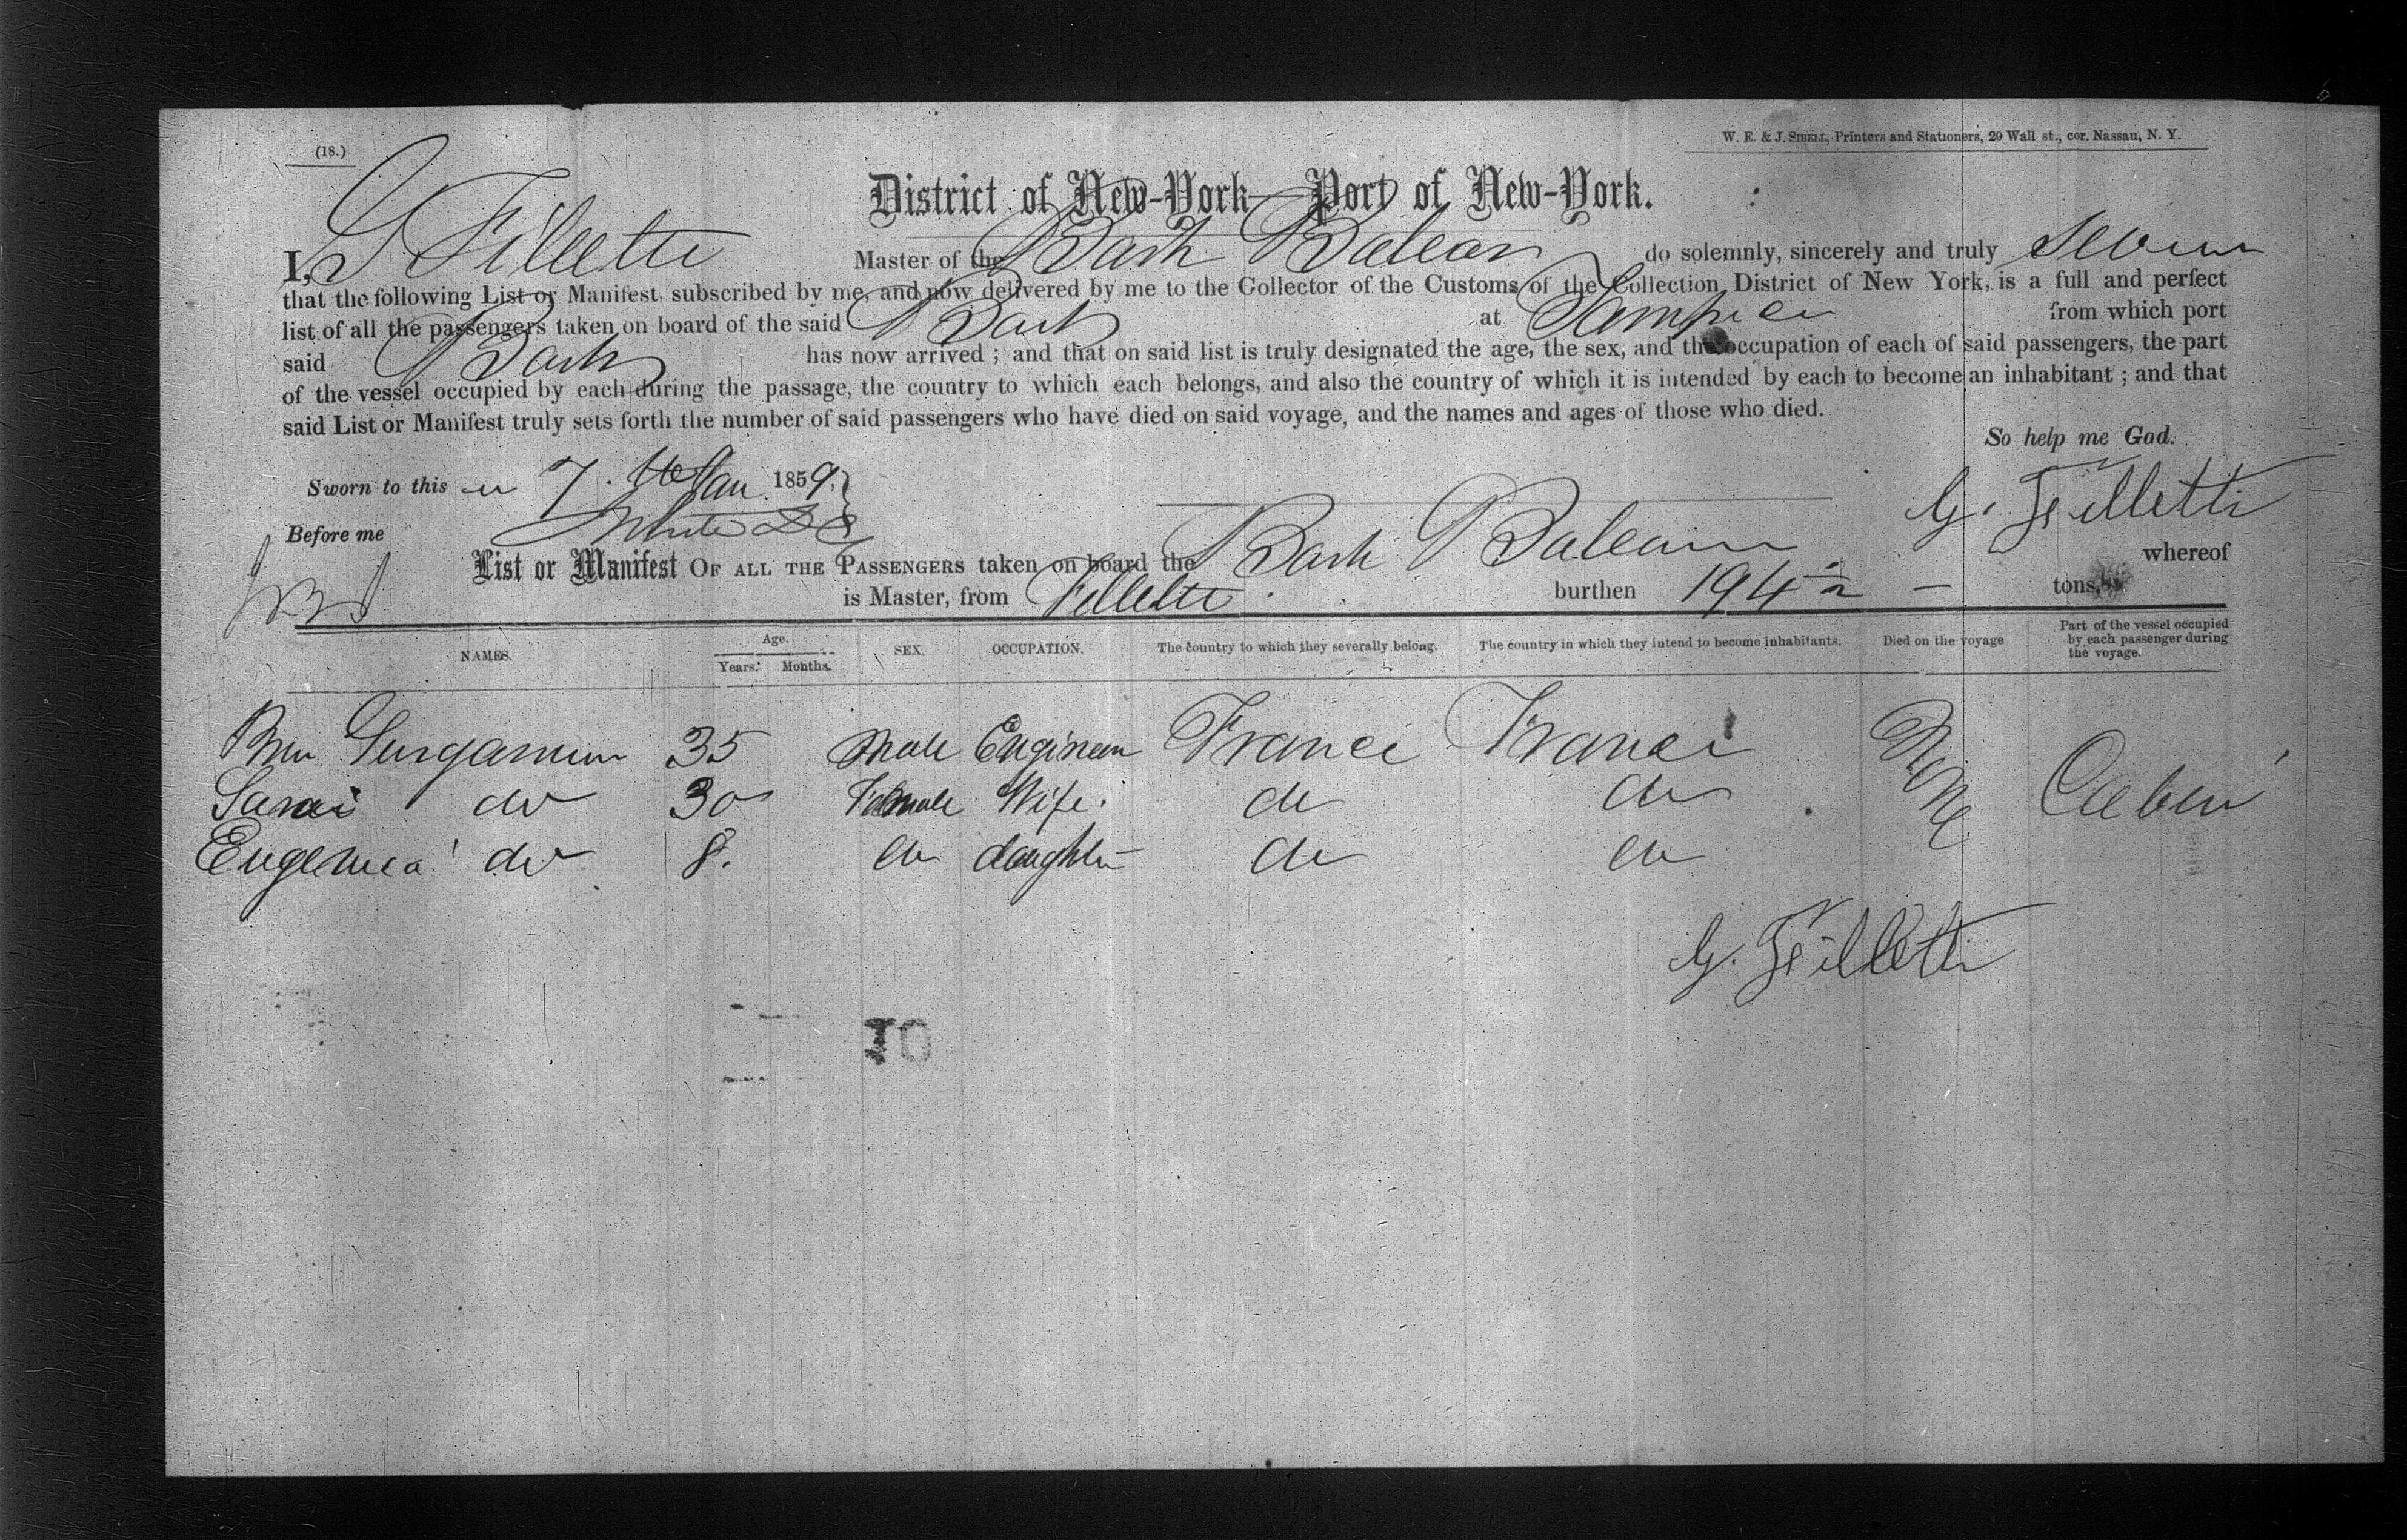 (18.)
W. E. & J. SIBELL, Printers and Stationers, 20 Wall st., cor. Nassau, N. Y.
District of New-York— Port of New-York.
I, G Filletti Master of the Bark Balear do solemnly, sincerely and truly
that the following List or Manifest, subscribed by me, and now delivered by me to the Collector of the Customs of the Collection District of New York, is a full and perfect
list of all the passengers taken on board of the said Bark at Tampico from which port
said Bark has now arrived ; and that on said list is truly designated the age, the sex, and the occupation of each of said passengers, the part
of the vessel occupied by each during the passage, the country to which each belongs, and also the country of which it is intended by each to become an inhabitant ; and that
said List or Manifest truly sets forth the number of said passengers who have died on said voyage, and the names and ages of those who died.
So help me God.
Sworn to this 7. Jan 1859,
G. Filletti
Before me White
List or Manifest OF ALL THE PASSENGERS taken on board the Bark whereof
Filletti is Master, from burthen 194 tons,
NAMES. Age. Years. Months. SEX. OCCUPATION. The country to which they severally belong. The country in which they intend to become inhabitants. Died on the voyage Part of the vessel occupied by each passenger during the voyage.
35 Male Engineer France France None Cabin
do 30 Female Wife. do do
Eugenia do 8. do daughter do do
G. Filletti
10